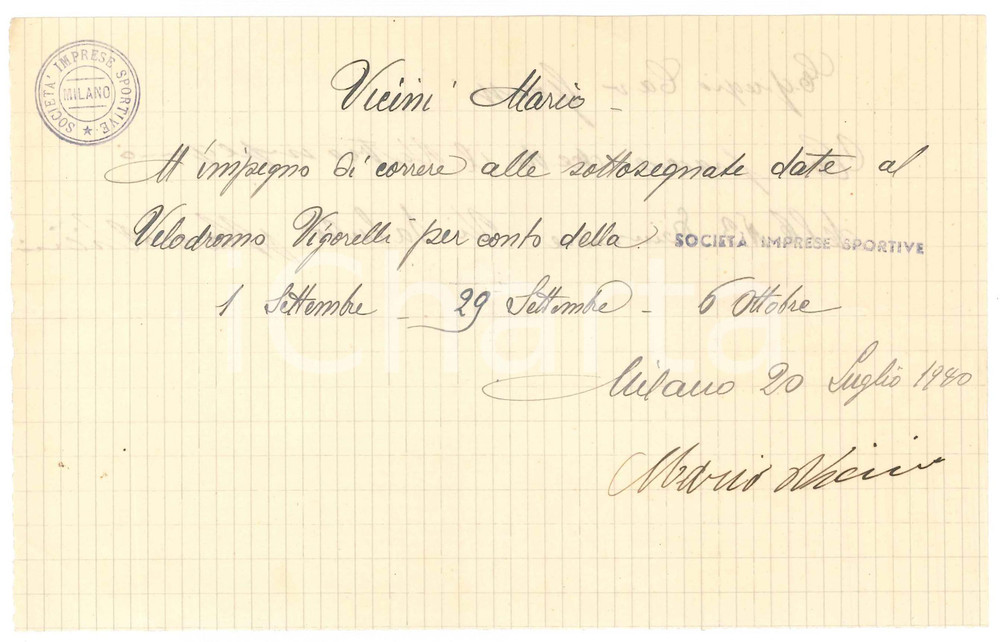 SOCIETA' IMPRESE SPORTIVE
MILANO
Vicini Mario -
M'impegno di correre alle sottosegnate date al
Velodromo Vigorelli per conto della SOCIETÀ IMPRESE SPORTIVE
1 Settembre - 29 Settembre - 6 Ottobre
Milano 20 Luglio 1940
Mario Vicini
1Charta